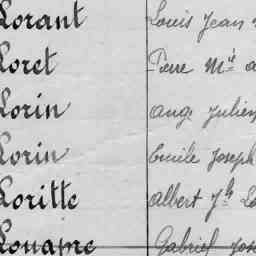 Lorant Louis Jean
Loret Pierre Mie
Lorin Ange Julien
Lorin Emile Joseph
Loritte Albert Jh
Louapre Gabriel